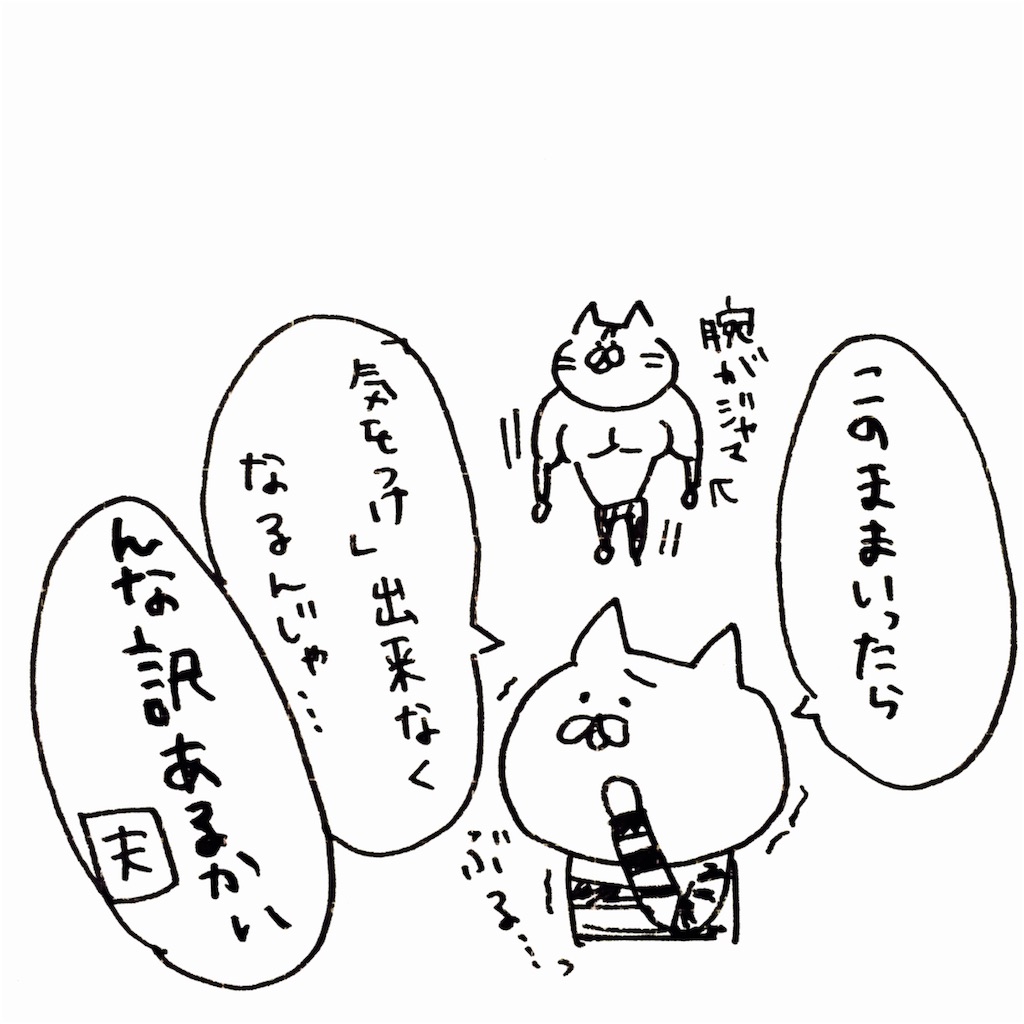 このままいったら
腕がジャマ
気をつけ」出来なく
なるんじゃ…
ぶる…っ
んな訳あるかい
夫